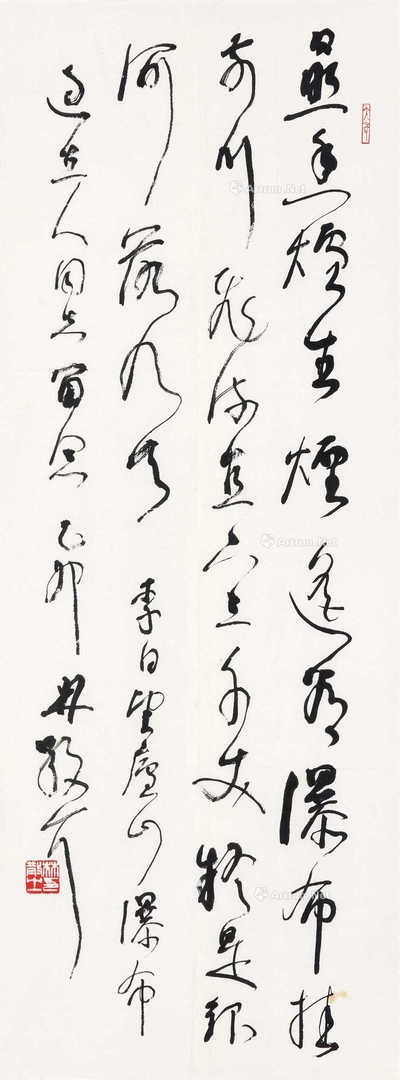 日照香爐生煙遙看瀑布挂
前川飛流直下三千丈疑是銀
河落九天 李白望廬山瀑布
人同志留念 乙卯 林散耳
Artron.Net
Artron.Net
Artron.Net
Artron.Net